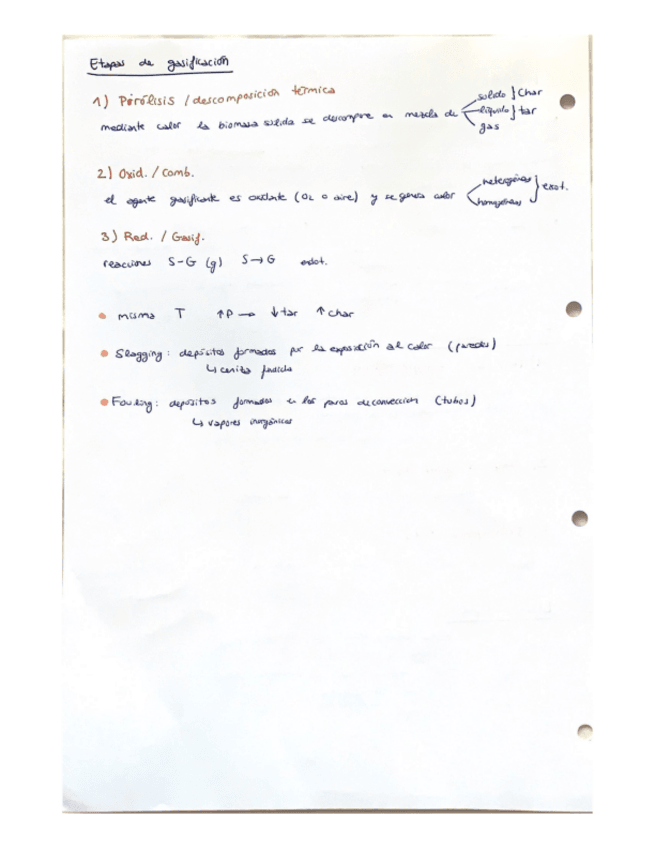 Etapas de gasificación
1) Pirólisis / descomposición térmica
mediante calor la biomasa sólida se descompone en mezcla de sólido } Char
líquido } tar
gas
2) Oxid. / Comb.
el agente gasificante es oxidante (O2 o aire) y se genera calor heterogéneas } exot.
homogéneas
3) Red. / Gasif.
reacciones S-G (g) S→G
• misma T ↑P → ↓tar ↑char
• Slagging: depósitos formados por la exposición al calor (paredes)
↳ ceniza fundida
• Fouling: depósitos formados en los pasos de convección (tubos)
↳ vapores inorgánicos